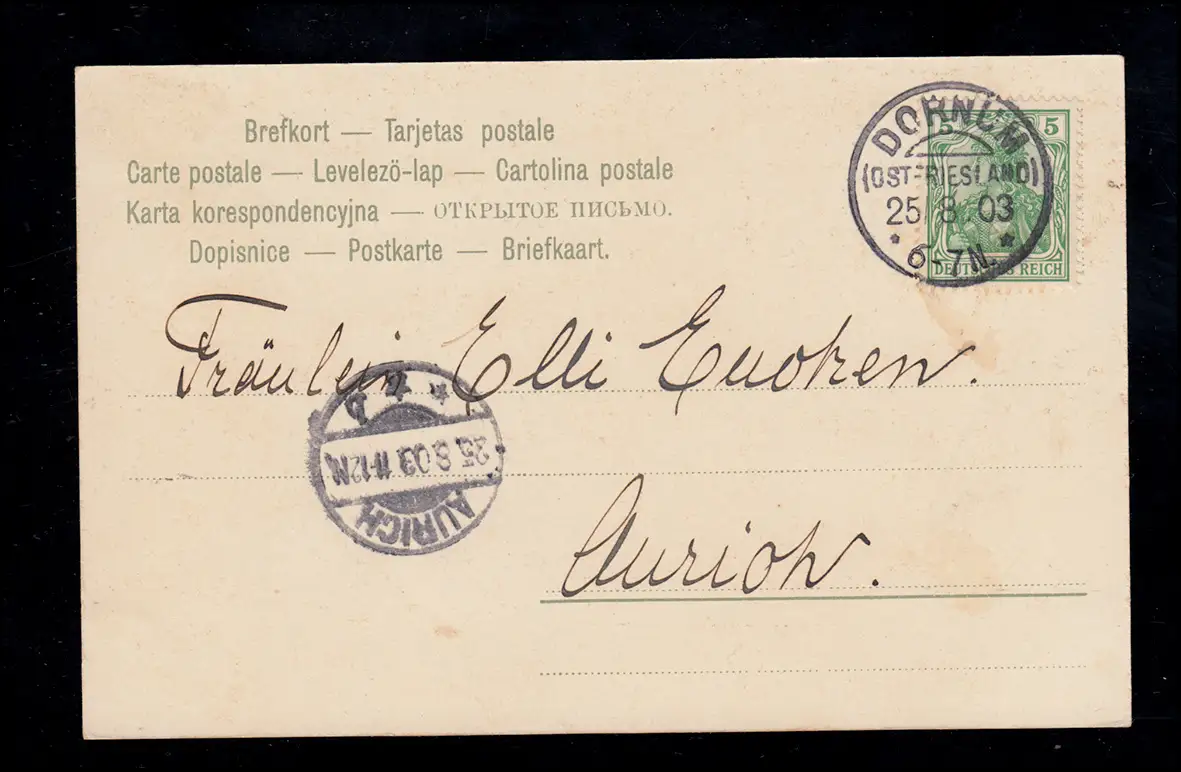 Brefkort — Tarjetas postale
Carte postale — Levelezö-lap — Cartolina postale
Karta korespondencyjna — ОТКРЫТОЕ ПИСЬМО.
Dopisnice — Postkarte — Briefkaart.
5 5
DEUTSCHES REICH
DORNUM
(OSTFRIESLAND)
25.8.03
* 6-7N. *
Fräulein Elli Eucken.
25.8.03 11-12N.
AURICH
Aurich.